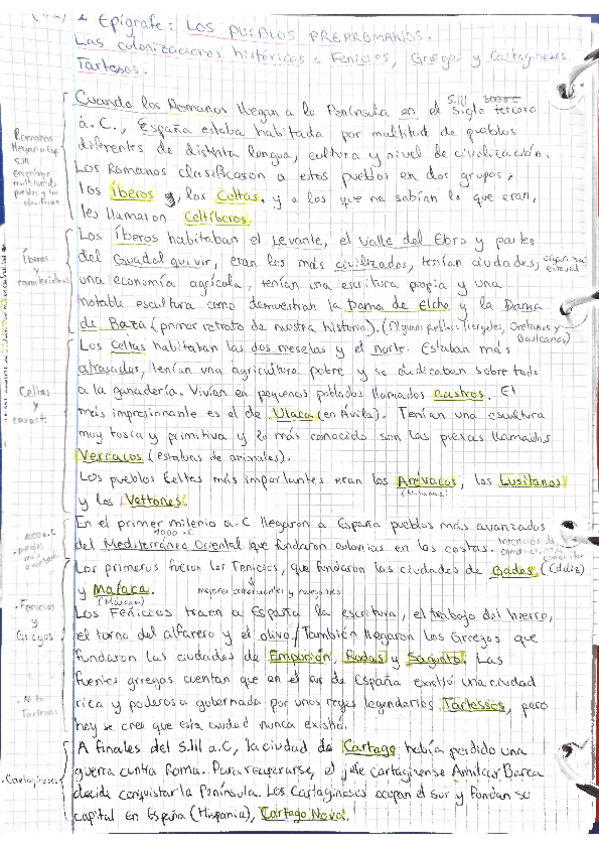 1 Epígrafe: LOS PUEBLOS PREPROMANOS.
Las colonizaciones históricas: Fenicios, Griegos y Cartagineses.
Tartesos.
S.III 3000 C
Cuando los Romanos llegan a la Península en el Siglo tercero
a.C., España estaba habitada por multitud de pueblos
diferentes de distinta lengua, cultura y nivel de civilización.
Los Romanos clasificaron a estos pueblos en dos grupos,
los Íberos y, los Celtas, y a los que no sabían lo que eran,
les llamaron Celtíberos.
Romanos
llegan a Esp
S.III
encuentran
multitud de
pueblos y los
clasifican
Los Íberos habitaban el Levante, el valle del Ebro y parte
del Guadalquivir, eran los más civilizados, tenían ciudades,
una economía agrícola, tenían una escritura propia y una
notable escultura como demuestran la Dama de Elche y la Dama
de Baza (primer retrato de nuestra historia). (Algunos pueblos: Ilergetes, Oretanos y
Bastetanos)
Íberos
y
características
Los Celtas habitaban las dos mesetas y el norte. Estaban más
atrasados, tenían una agricultura pobre y se dedicaban sobre todo
a la ganadería. Vivían en pequeños poblados llamados castros. El
más impresionante es el de Ulaca (en Ávila). Tenían una escultura
muy tosca y primitiva y lo más conocido son las piezas llamadas
Verracos (estatuas de animales).
Los pueblos Celtas más importantes eran los Arévacos, los Lusitanos
y los Vettones.
Celtas
y
caract.
En el primer milenio a.C llegaron a España pueblos más avanzados
1000 a.C
del Mediterráneo Oriental que fundaron colonias en las costas.
Los primeros fueron los Fenicios, que fundaron las ciudades de Gades (Cádiz)
y Malaca.
(Málaga)
mejores comerciantes y navegantes
Los Fenicios traen a España la escritura, el trabajo del hierro,
el torno del alfarero y el olivo. También llegaron los Griegos que
fundaron las ciudades de Emporión, Rodas y Sagunto. Las
fuentes griegas cuentan que en el sur de España existió una ciudad
rica y poderosa gobernada por unos reyes legendarios Tartessos, pero
hoy se cree que esta ciudad nunca existió.
1000 a.C
pueblos
más
avanzados
· Fenicios
y
Griegos
· Mito
Tartesos
A finales del S.III a.C, la ciudad de Cartago había perdido una
guerra contra Roma. Para recuperarse, el jefe cartaginense Amílcar Barca
decide conquistar la Península. Los Cartagineses ocupan el sur y fundan su
capital en España (Hispania), Cartago Nova.
· Cartagineses